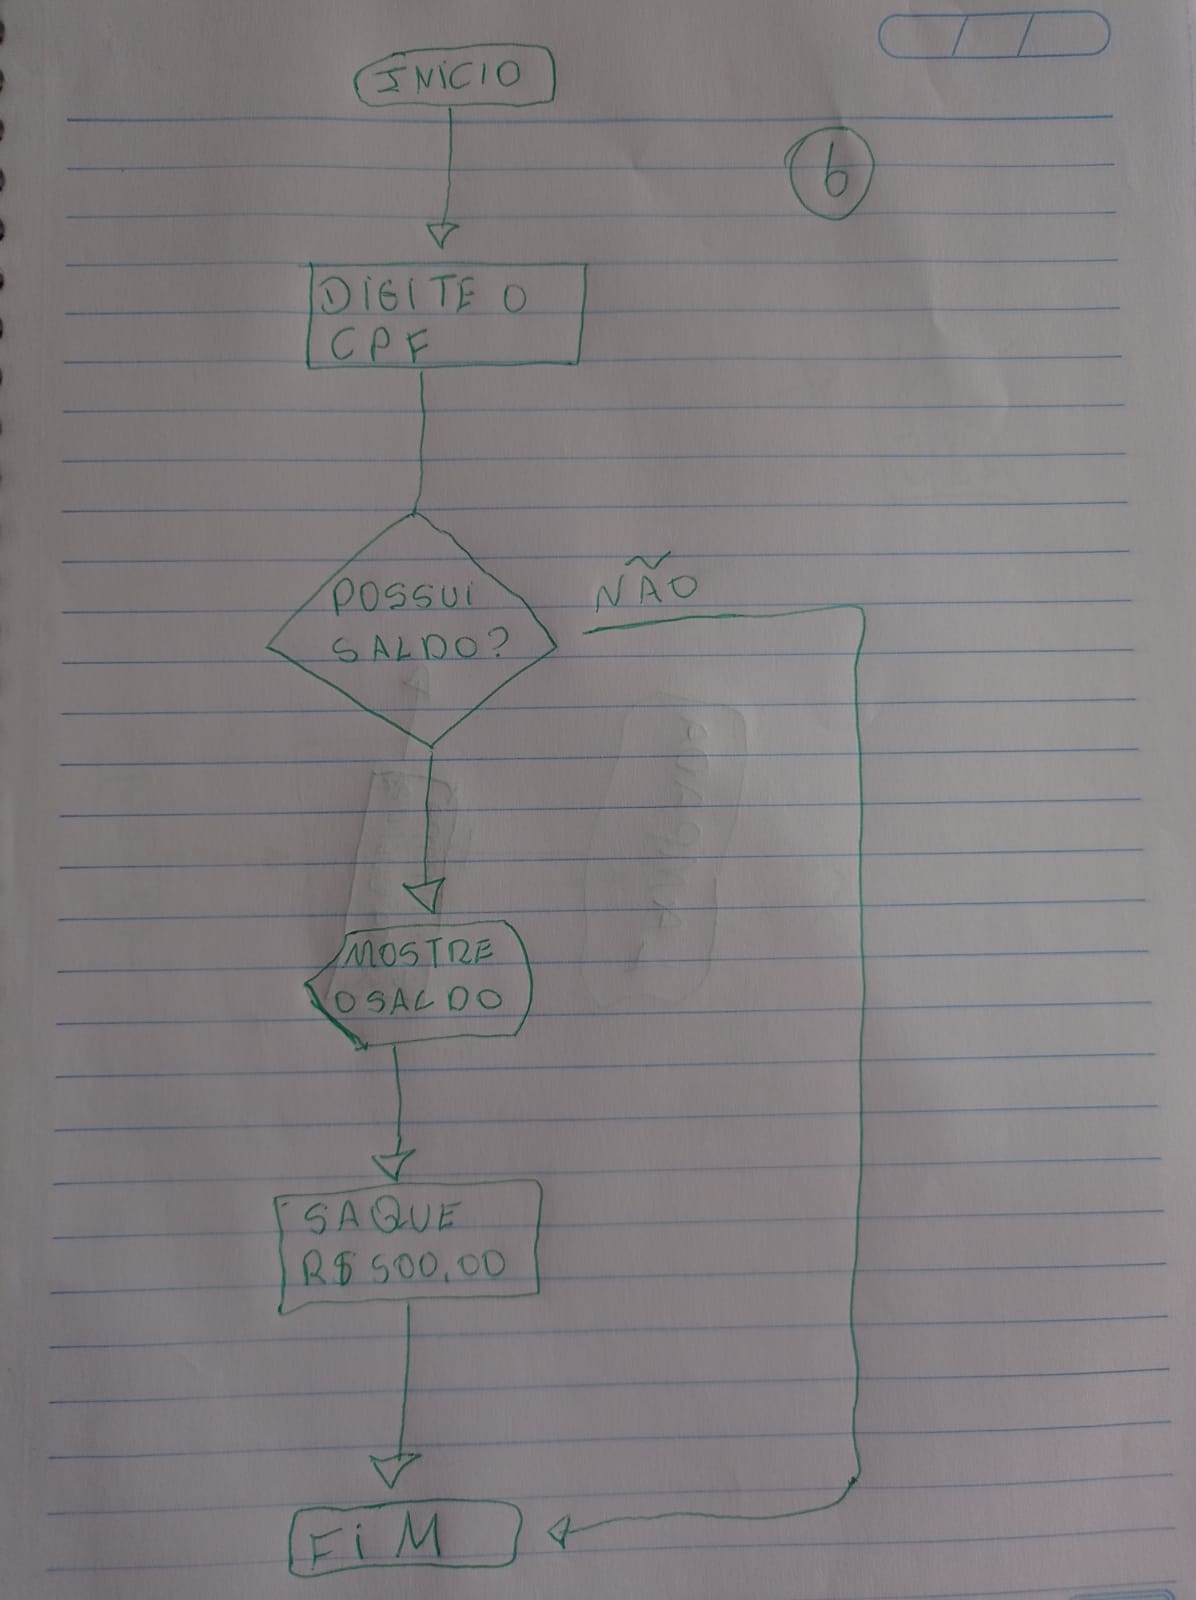 INICIO
6
DIGITE O
CPF
POSSUI
SALDO?
NÃO
MOSTRE
O SALDO
SAQUE
R$ 500,00
FIM